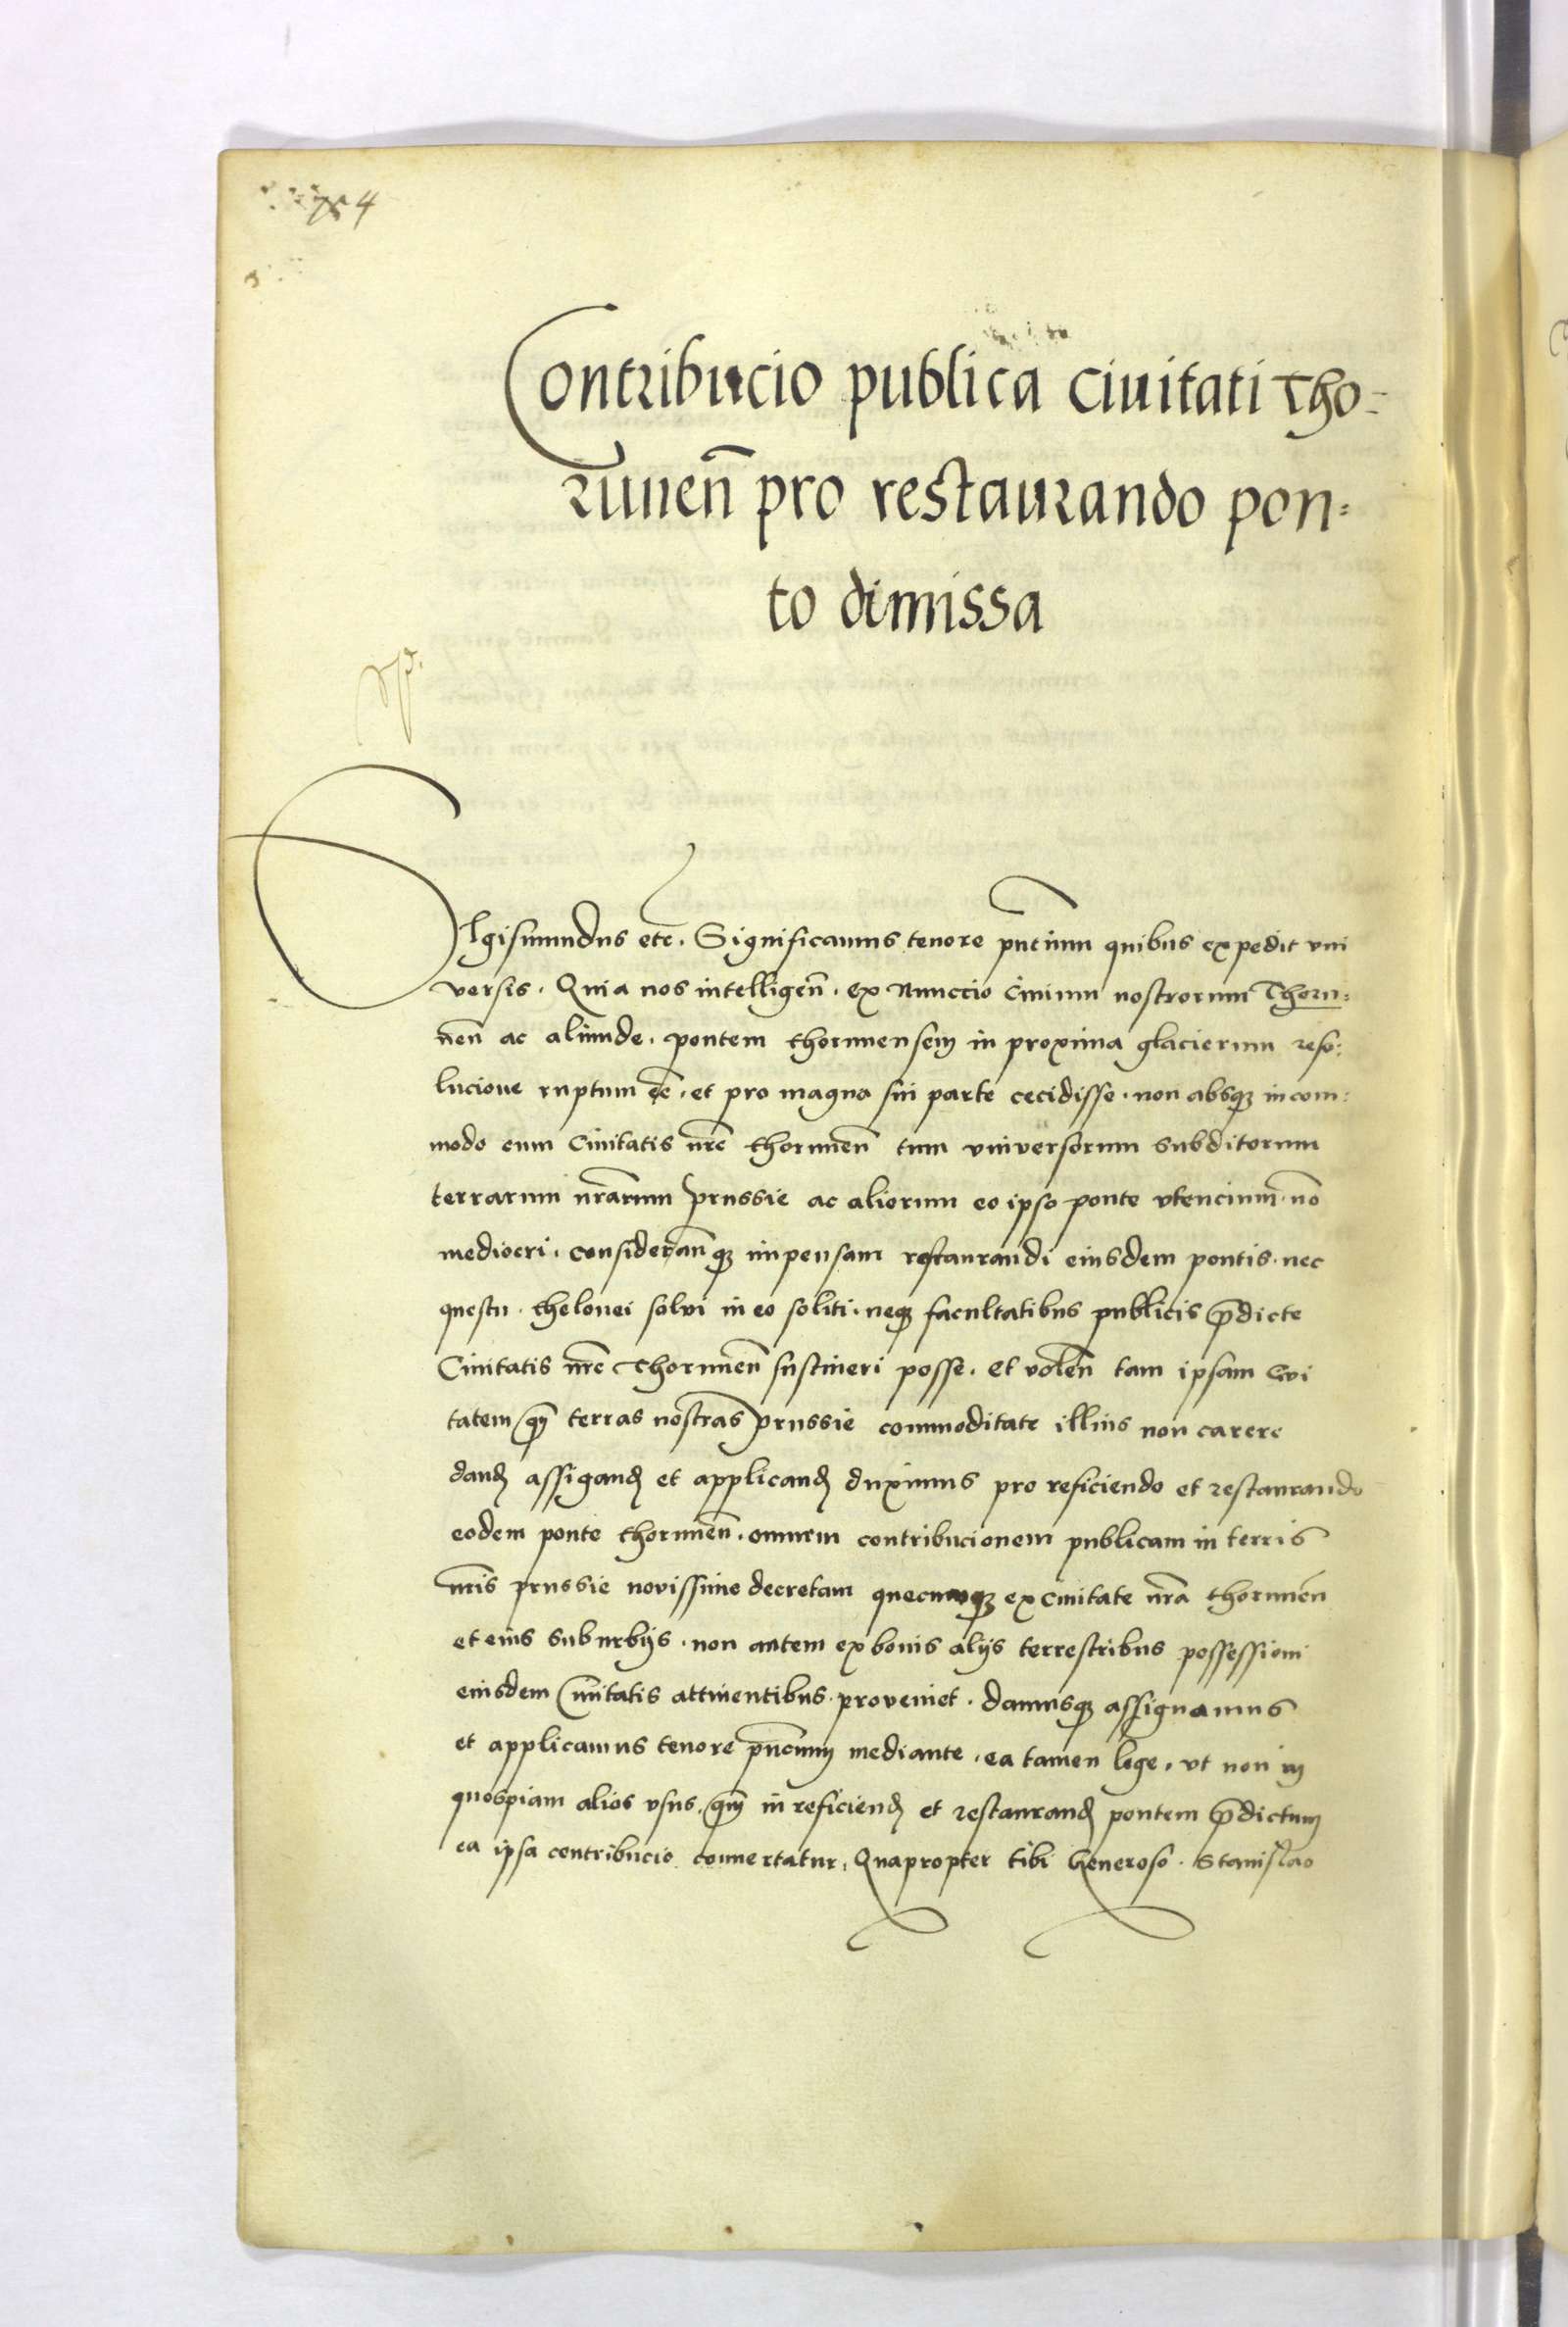 Contribucio publica Ciuitati Tho=
runen̄ pro restaurando pon=
to dimissa
SIgismundus etc̄. Significamus tenore pn̄tium quibus expedit vni
versis. Quia nos intelligen̄. ex Nunccio Ciuium nostrorum Thoru=
nen̄ ac aliunde. pontem thorunensem in proxima glacierum reso=
lucione ruptum eē. et pro magna sui parte cecidisse. non absqꝫ incom=
modo cum Ciuitatis nr̄e thorunen̄ tum vniversorum subditorum
terrarum nr̄arum prussie ac aliorum eo ipso ponte vtencium. no̅
mediocri. consideran̄qꝫ impensam restaurandi eiusdem pontis. nec
questu. thelonei solvi in eo soliti. neqꝫ facultatibus publicis p̄dicte
Ciuitatis nr̄e Thorunen̄ sustineri posse. et volen̄ tam ipsam Civi
tatem qꝫ̄ terras nostras prussie commoditate illius non carere
dand̄ assigand̄ et applicand̄ duximus pro reficiendo et restaurando
eodem ponte thorunen̄. omnem contribucionem publicam in terris
nr̄is prussie novissime decretam quecumqꝫ ex Ciuitate nr̄a thorunen̄
et eius suburbijs. non autem ex bonis alijs terrestribus possessioni
eiusdem Ciuitatis attinentibus. proveniet. damusqꝫ assignamus
et applicamus tenore pn̄cium mediante. ea tamen lege. vt non in
quospiam alios vsus. qm̄ in reficiend̄ et restaurand̄ pontem p̄dictum
ea ipsa contribucio conuertatur. Quapropter tibi Generoso. Stanislao